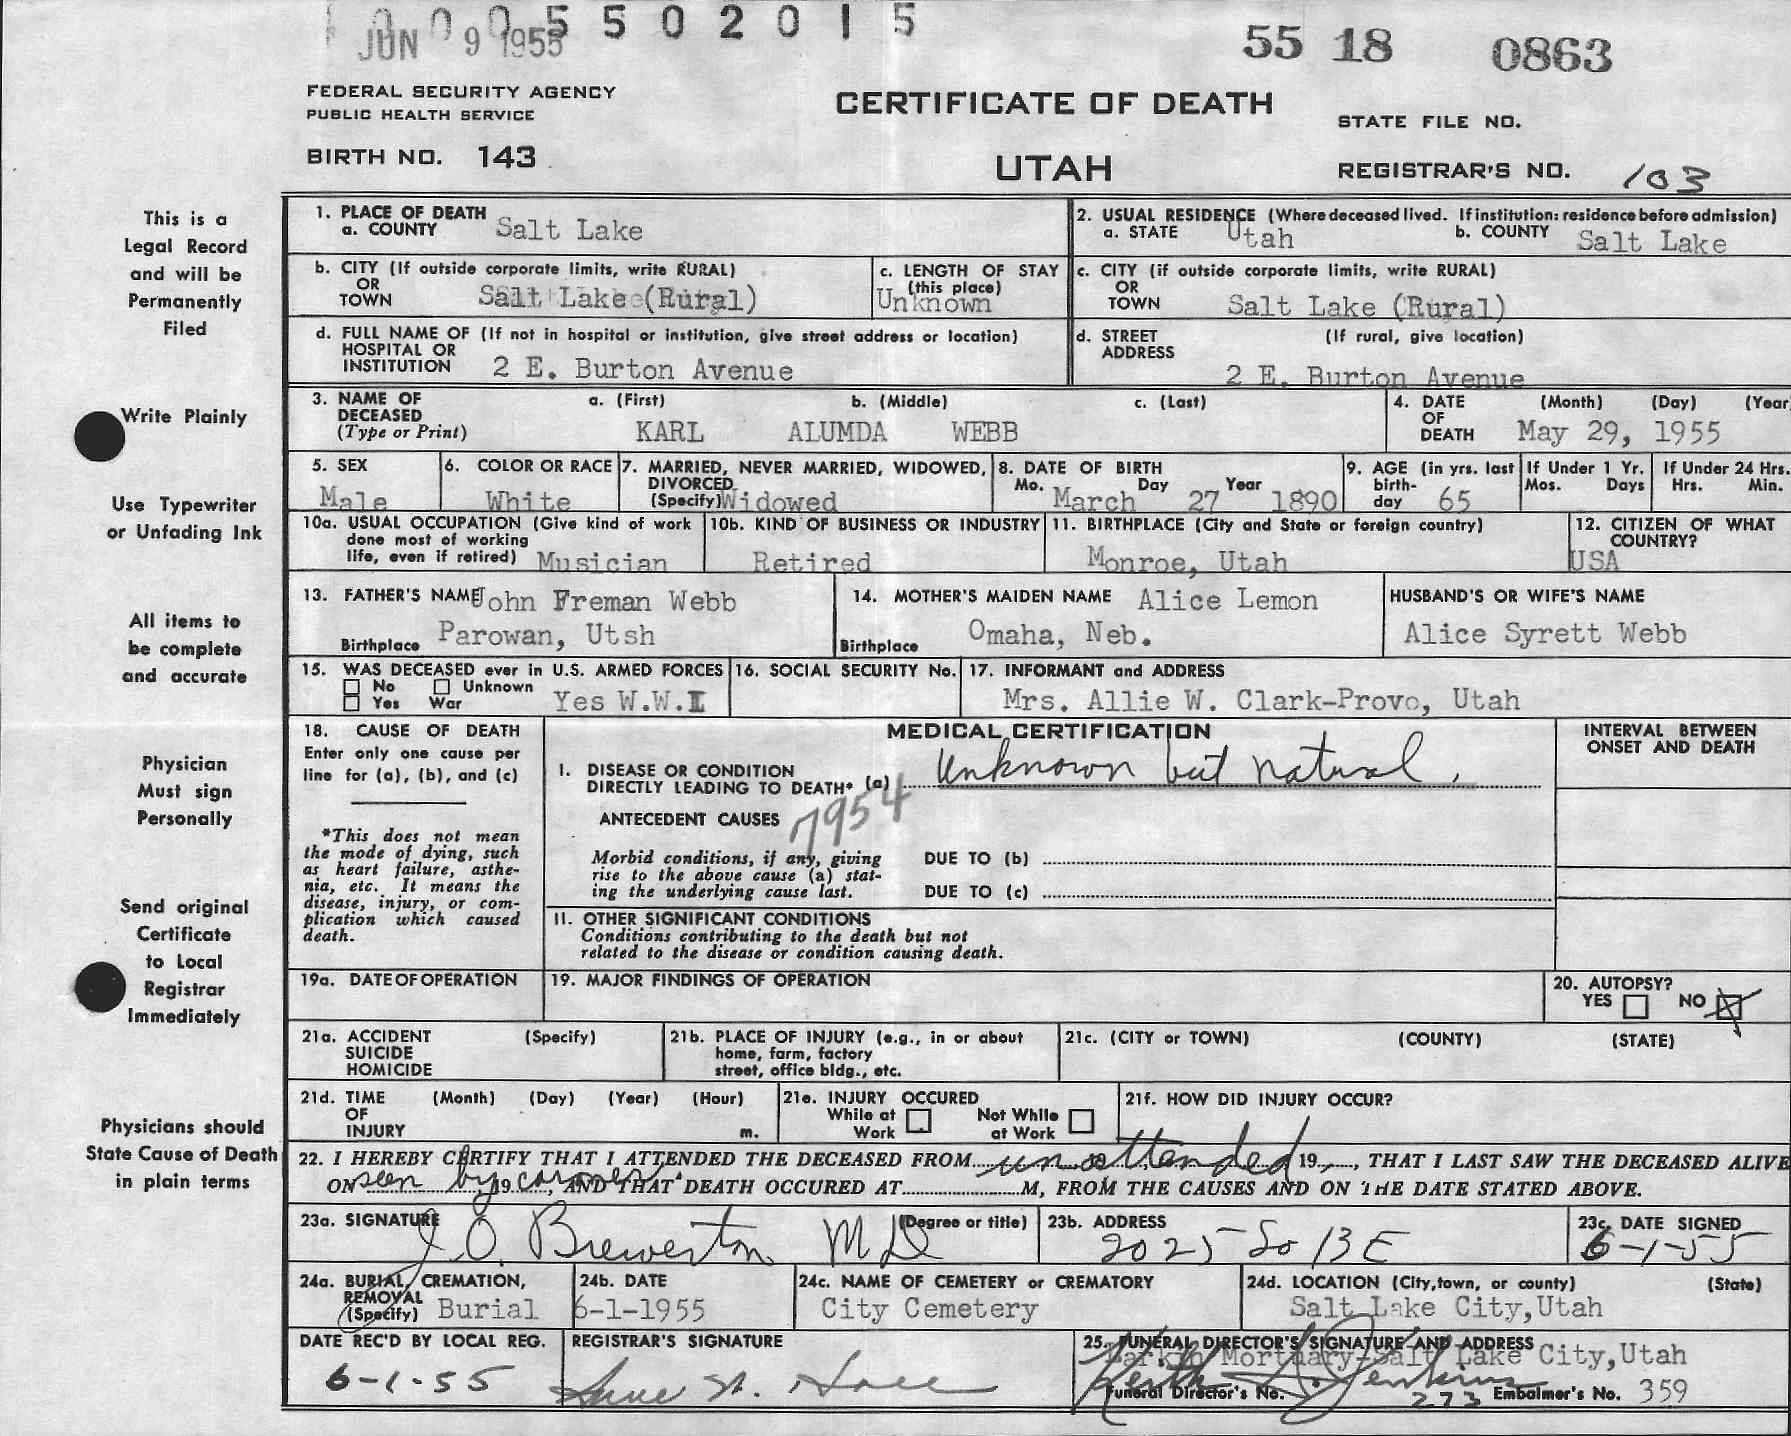 JUN 9 1955 5 5 0 2 0 1 5
55 18 0863
FEDERAL SECURITY AGENCY
PUBLIC HEALTH SERVICE
CERTIFICATE OF DEATH
STATE FILE NO.
BIRTH NO. 143
UTAH
REGISTRAR'S NO. 103
This is a
Legal Record
and will be
Permanently
Filed
Write Plainly
Use Typewriter
or Unfading Ink
All items to
be complete
and accurate
Physician
Must sign
Personally
Send original
Certificate
to Local
Registrar
Immediately
Physicians should
State Cause of Death
in plain terms
1. PLACE OF DEATH
a. COUNTY Salt Lake
2. USUAL RESIDENCE (Where deceased lived. If institution: residence before admission)
a. STATE Utah b. COUNTY Salt Lake
b. CITY (If outside corporate limits, write RURAL)
OR
TOWN Salt Lake (Rural)
c. LENGTH OF STAY
(this place)
Unknown
c. CITY (if outside corporate limits, write RURAL)
OR
TOWN Salt Lake (Rural)
d. FULL NAME OF (If not in hospital or institution, give street address or location)
HOSPITAL OR
INSTITUTION 2 E. Burton Avenue
d. STREET (If rural, give location)
ADDRESS
2 E. Burton Avenue
3. NAME OF a. (First) b. (Middle) c. (Last)
DECEASED
(Type or Print) KARL ALUMDA WEBB
4. DATE (Month) (Day) (Year
OF
DEATH May 29, 1955
5. SEX
Male
6. COLOR OR RACE
White
7. MARRIED, NEVER MARRIED, WIDOWED,
DIVORCED
(Specify) Widowed
8. DATE OF BIRTH
Mo. Day Year
March 27 1890
9. AGE (in yrs. last
birth-
day 65
If Under 1 Yr.
Mos. Days
If Under 24 Hrs.
Hrs. Min.
10a. USUAL OCCUPATION (Give kind of work
done most of working
life, even if retired) Musician
10b. KIND OF BUSINESS OR INDUSTRY
Retired
11. BIRTHPLACE (City and State or foreign country)
Monroe, Utah
12. CITIZEN OF WHAT
COUNTRY?
USA
13. FATHER'S NAME John Freman Webb
Birthplace Parowan, Utsh
14. MOTHER'S MAIDEN NAME Alice Lemon
Birthplace Omaha, Neb.
HUSBAND'S OR WIFE'S NAME
Alice Syrett Webb
15. WAS DECEASED ever in U.S. ARMED FORCES
No Unknown
Yes War Yes W.W.I
16. SOCIAL SECURITY No.
17. INFORMANT and ADDRESS
Mrs. Allie W. Clark-Provo, Utah
18. CAUSE OF DEATH
Enter only one cause per
line for (a), (b), and (c)
*This does not mean
the mode of dying, such
as heart failure, asthe-
nia, etc. It means the
disease, injury, or com-
plication which caused
death.
MEDICAL CERTIFICATION
I. DISEASE OR CONDITION
DIRECTLY LEADING TO DEATH* (a) Unknown but natural.
ANTECEDENT CAUSES 7954
Morbid conditions, if any, giving
rise to the above cause (a) stat-
ing the underlying cause last.
DUE TO (b)
DUE TO (c)
II. OTHER SIGNIFICANT CONDITIONS
Conditions contributing to the death but not
related to the disease or condition causing death.
INTERVAL BETWEEN
ONSET AND DEATH
19a. DATE OF OPERATION
19. MAJOR FINDINGS OF OPERATION
20. AUTOPSY?
YES NO X
21a. ACCIDENT (Specify)
SUICIDE
HOMICIDE
21b. PLACE OF INJURY (e.g., in or about
home, farm, factory
street, office bldg., etc.
21c. (CITY or TOWN) (COUNTY) (STATE)
21d. TIME (Month) (Day) (Year) (Hour)
OF
INJURY m.
21e. INJURY OCCURED
While at Not While
Work at Work
21f. HOW DID INJURY OCCUR?
22. I HEREBY CERTIFY THAT I ATTENDED THE DECEASED FROM unattended 19 , THAT I LAST SAW THE DECEASED ALIVE
ON seen by coroner 19 , AND THAT DEATH OCCURED AT M, FROM THE CAUSES AND ON THE DATE STATED ABOVE.
23a. SIGNATURE (Degree or title)
J. O. Brewerton MD
23b. ADDRESS
2025 So 13 E
23c. DATE SIGNED
6-1-55
24a. BURIAL, CREMATION,
REMOVAL
(Specify) Burial
24b. DATE
6-1-1955
24c. NAME OF CEMETERY or CREMATORY
City Cemetery
24d. LOCATION (City, town, or county) (State)
Salt Lake City, Utah
DATE REC'D BY LOCAL REG.
6-1-55
REGISTRAR'S SIGNATURE
25. FUNERAL DIRECTOR'S SIGNATURE AND ADDRESS
Larkin Mortuary-Salt Lake City, Utah
Jenkins
Funeral Director's No. 273 Embalmer's No. 359